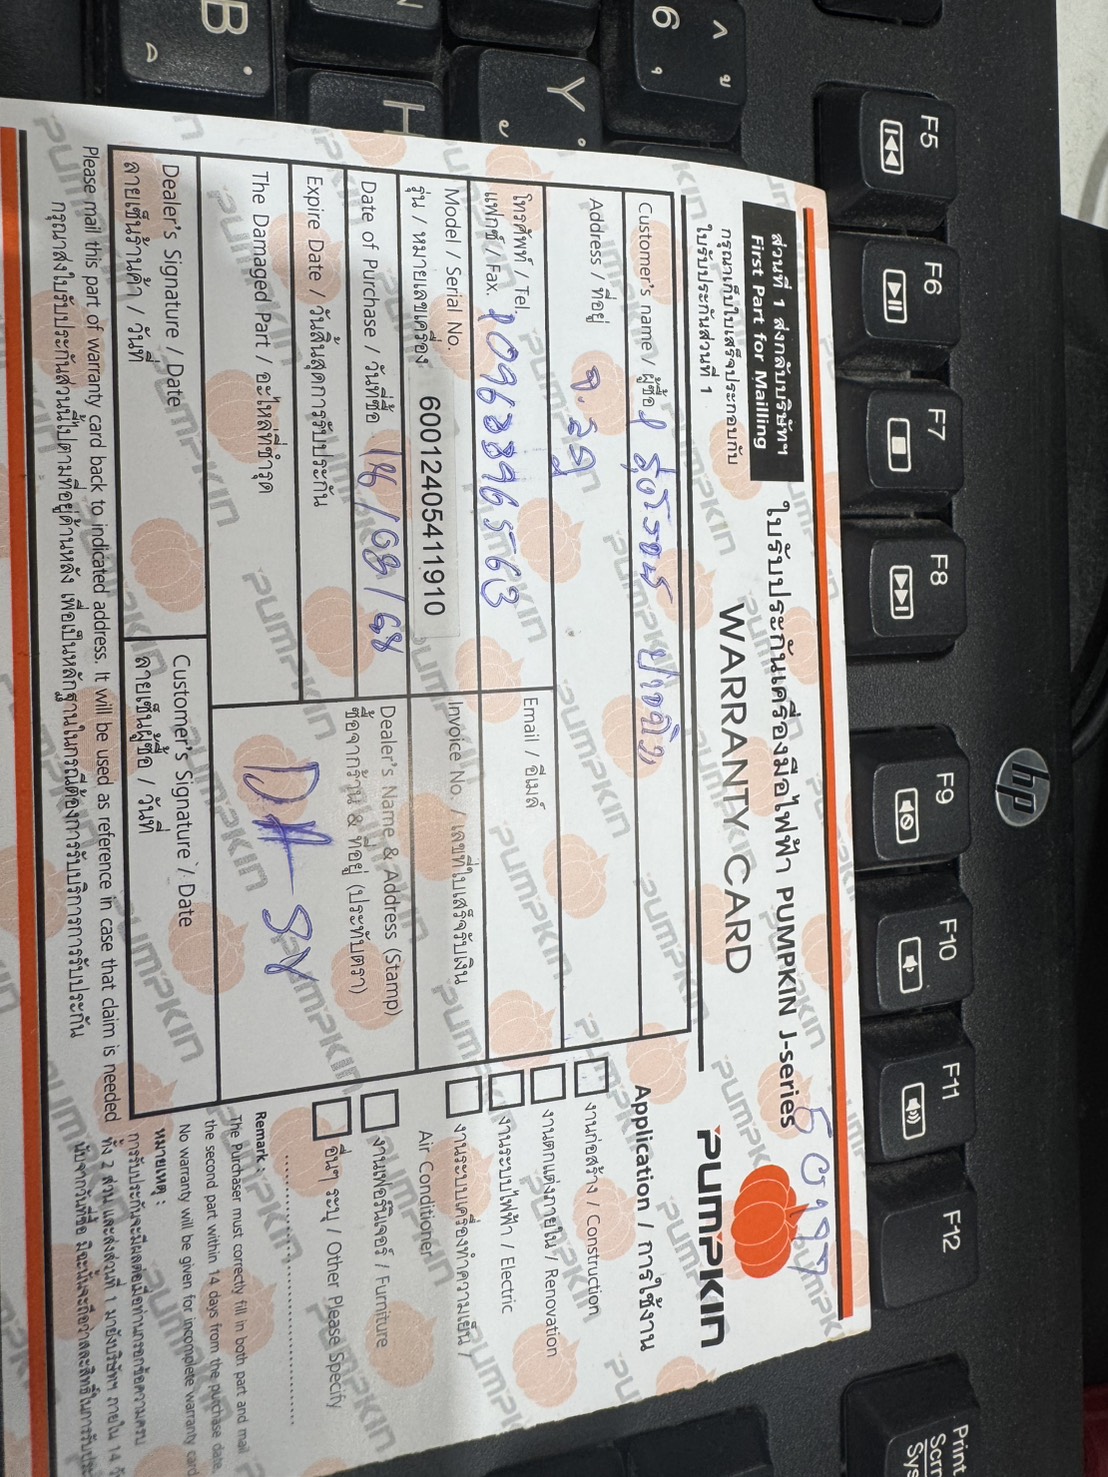 ส่วนที่ 1 ส่งกลับบริษัทฯ
First Part for Mailling
กรุณาเก็บใบเสร็จประกอบกับ
ใบรับประกันส่วนที่ 1
ใบรับประกันเครื่องมือไฟฟ้า PUMPKIN J-series
WARRANTY CARD
50197
PUMPKIN
Customer's name / ผู้ซื้อ
Address / ที่อยู่
โทรศัพท์ / Tel.
แฟกซ์ / Fax.
Email / อีเมล์
Model / Serial No.
รุ่น / หมายเลขเครื่อง 6001240541910
Invoice No. / เลขที่ใบเสร็จรับเงิน
Date of Purchase / วันที่ซื้อ 18/08/68
Dealer's Name & Address (Stamp)
ชื่อจากร้าน & ที่อยู่ (ประทับตรา)
Expire Date / วันสิ้นสุดการรับประกัน
The Damaged Part / อะไหล่ที่ชำรุด
Dealer's Signature / Date
ลายเซ็นร้านค้า / วันที่
Customer's Signature / Date
ลายเซ็นผู้ซื้อ / วันที่
Please mail this part of warranty card back to indicated address. It will be used as reference in case that claim is needed
กรุณาส่งใบรับประกันส่วนนี้ไปตามที่อยู่ด้านหลัง เพื่อเป็นหลักฐานในกรณีต้องการรับบริการการรับประกัน
Application / การใช้งาน
งานก่อสร้าง / Construction
งานตกแต่งภายใน / Renovation
งานระบบไฟฟ้า / Electric
งานระบบเครื่องทำความเย็น /
Air Conditioner
งานเฟอร์นิเจอร์ / Furniture
อื่นๆ ระบุ / Other Please Specify
Remark :
The Purchaser must correctly fill in both part and mail
the second part within 14 days from the purchase date.
No warranty will be given for incomplete warranty card
หมายเหตุ :
การรับประกันจะมีผลต่อเมื่อท่านกรอกข้อความครบ
ทั้ง 2 ส่วน และส่งส่วนที่ 1 มายังบริษัทฯ ภายใน 14
นับจากวันที่ซื้อ มิฉะนั้นจะถือว่าสละสิทธิ์ในการรับประ
F5
F6
F7
F8
F9
F10
F11
F12
Print
Scrn
Sys
hp
6
Y
H
B